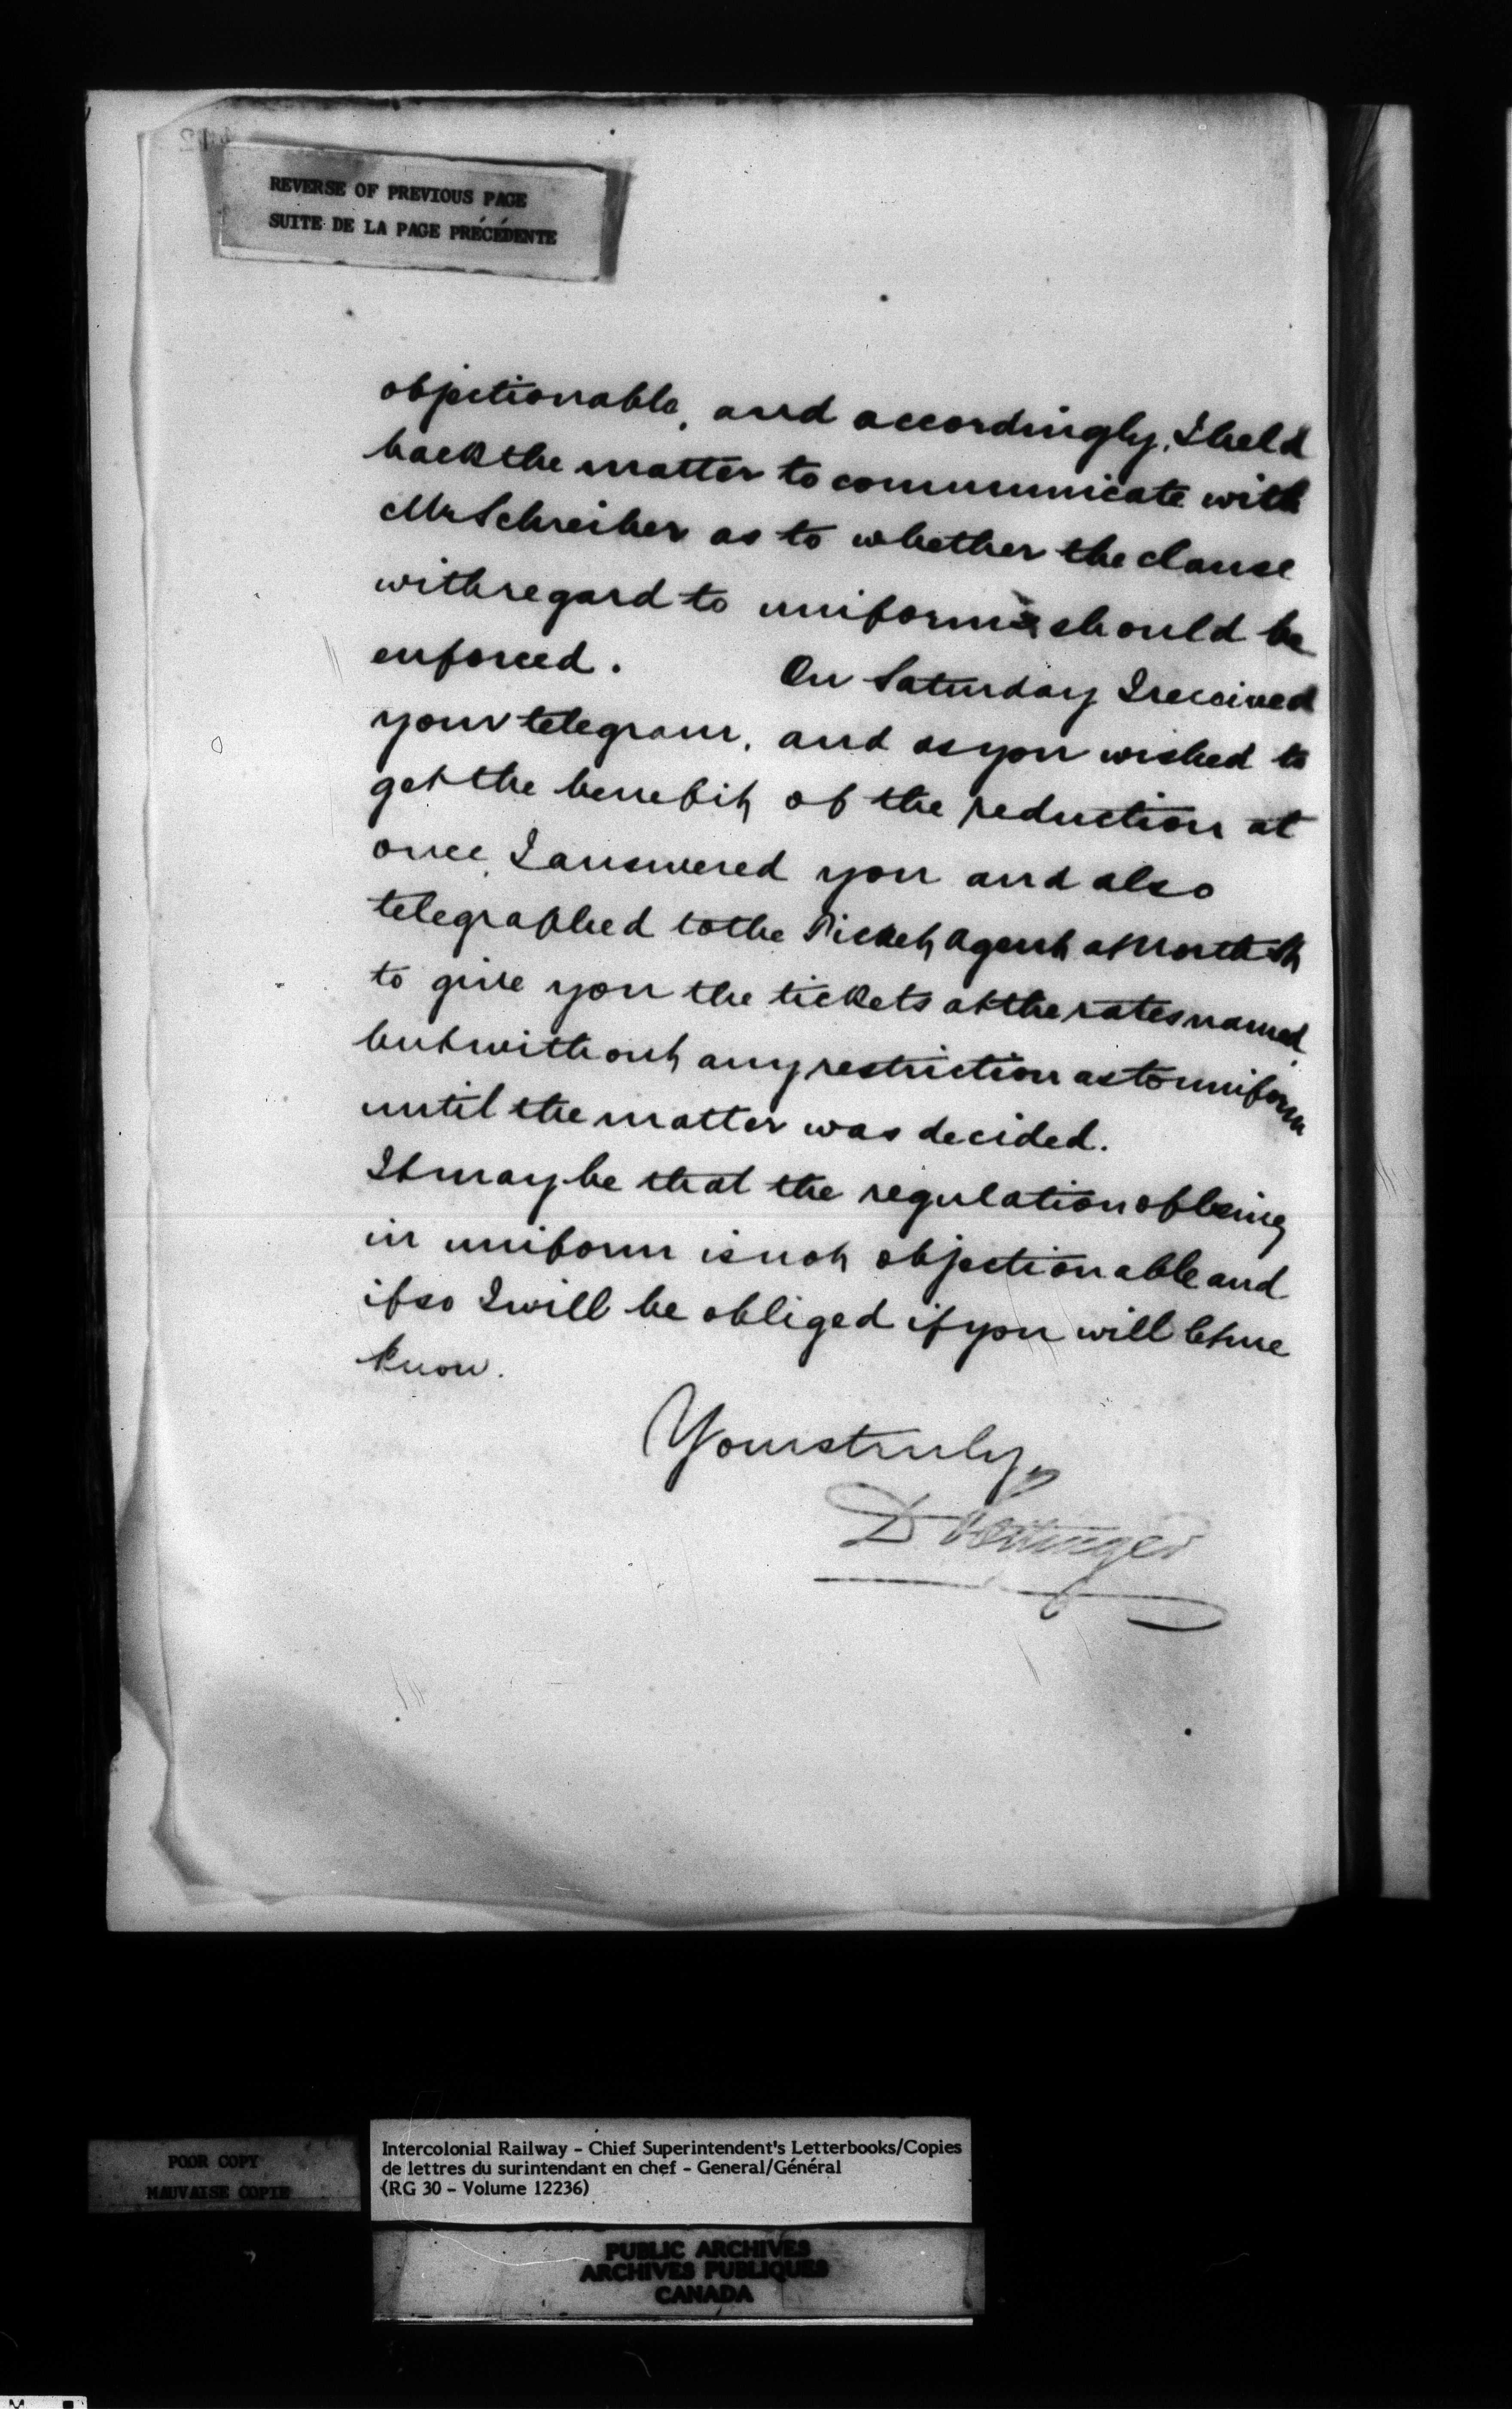 REVERSE OF PREVIOUS PAGE
SUITE DE LA PAGE PRÉCÉDENTE
objectionable, and accordingly, I held
back the matter to communicate with
Mr Schreiber as to whether the clause
with regard to uniforms should be
enforced. On Saturday I received
your telegram, and as you wished to
get the benefit of the reduction at
once, I answered you and also
telegraphed to the Ticket Agent at North St
to give you the tickets at the rates named,
but without any restriction as to uniform
until the matter was decided.
It may be that the regulation of being
in uniform is not objectionable and
if so I will be obliged if you will let me
know.
Yours truly,
D Pottinger
POOR COPY
MAUVAISE COPIE
Intercolonial Railway - Chief Superintendent's Letterbooks/Copies
de lettres du surintendant en chef - General/Général
(RG 30 - Volume 12236)
PUBLIC ARCHIVES
ARCHIVES PUBLIQUES
CANADA